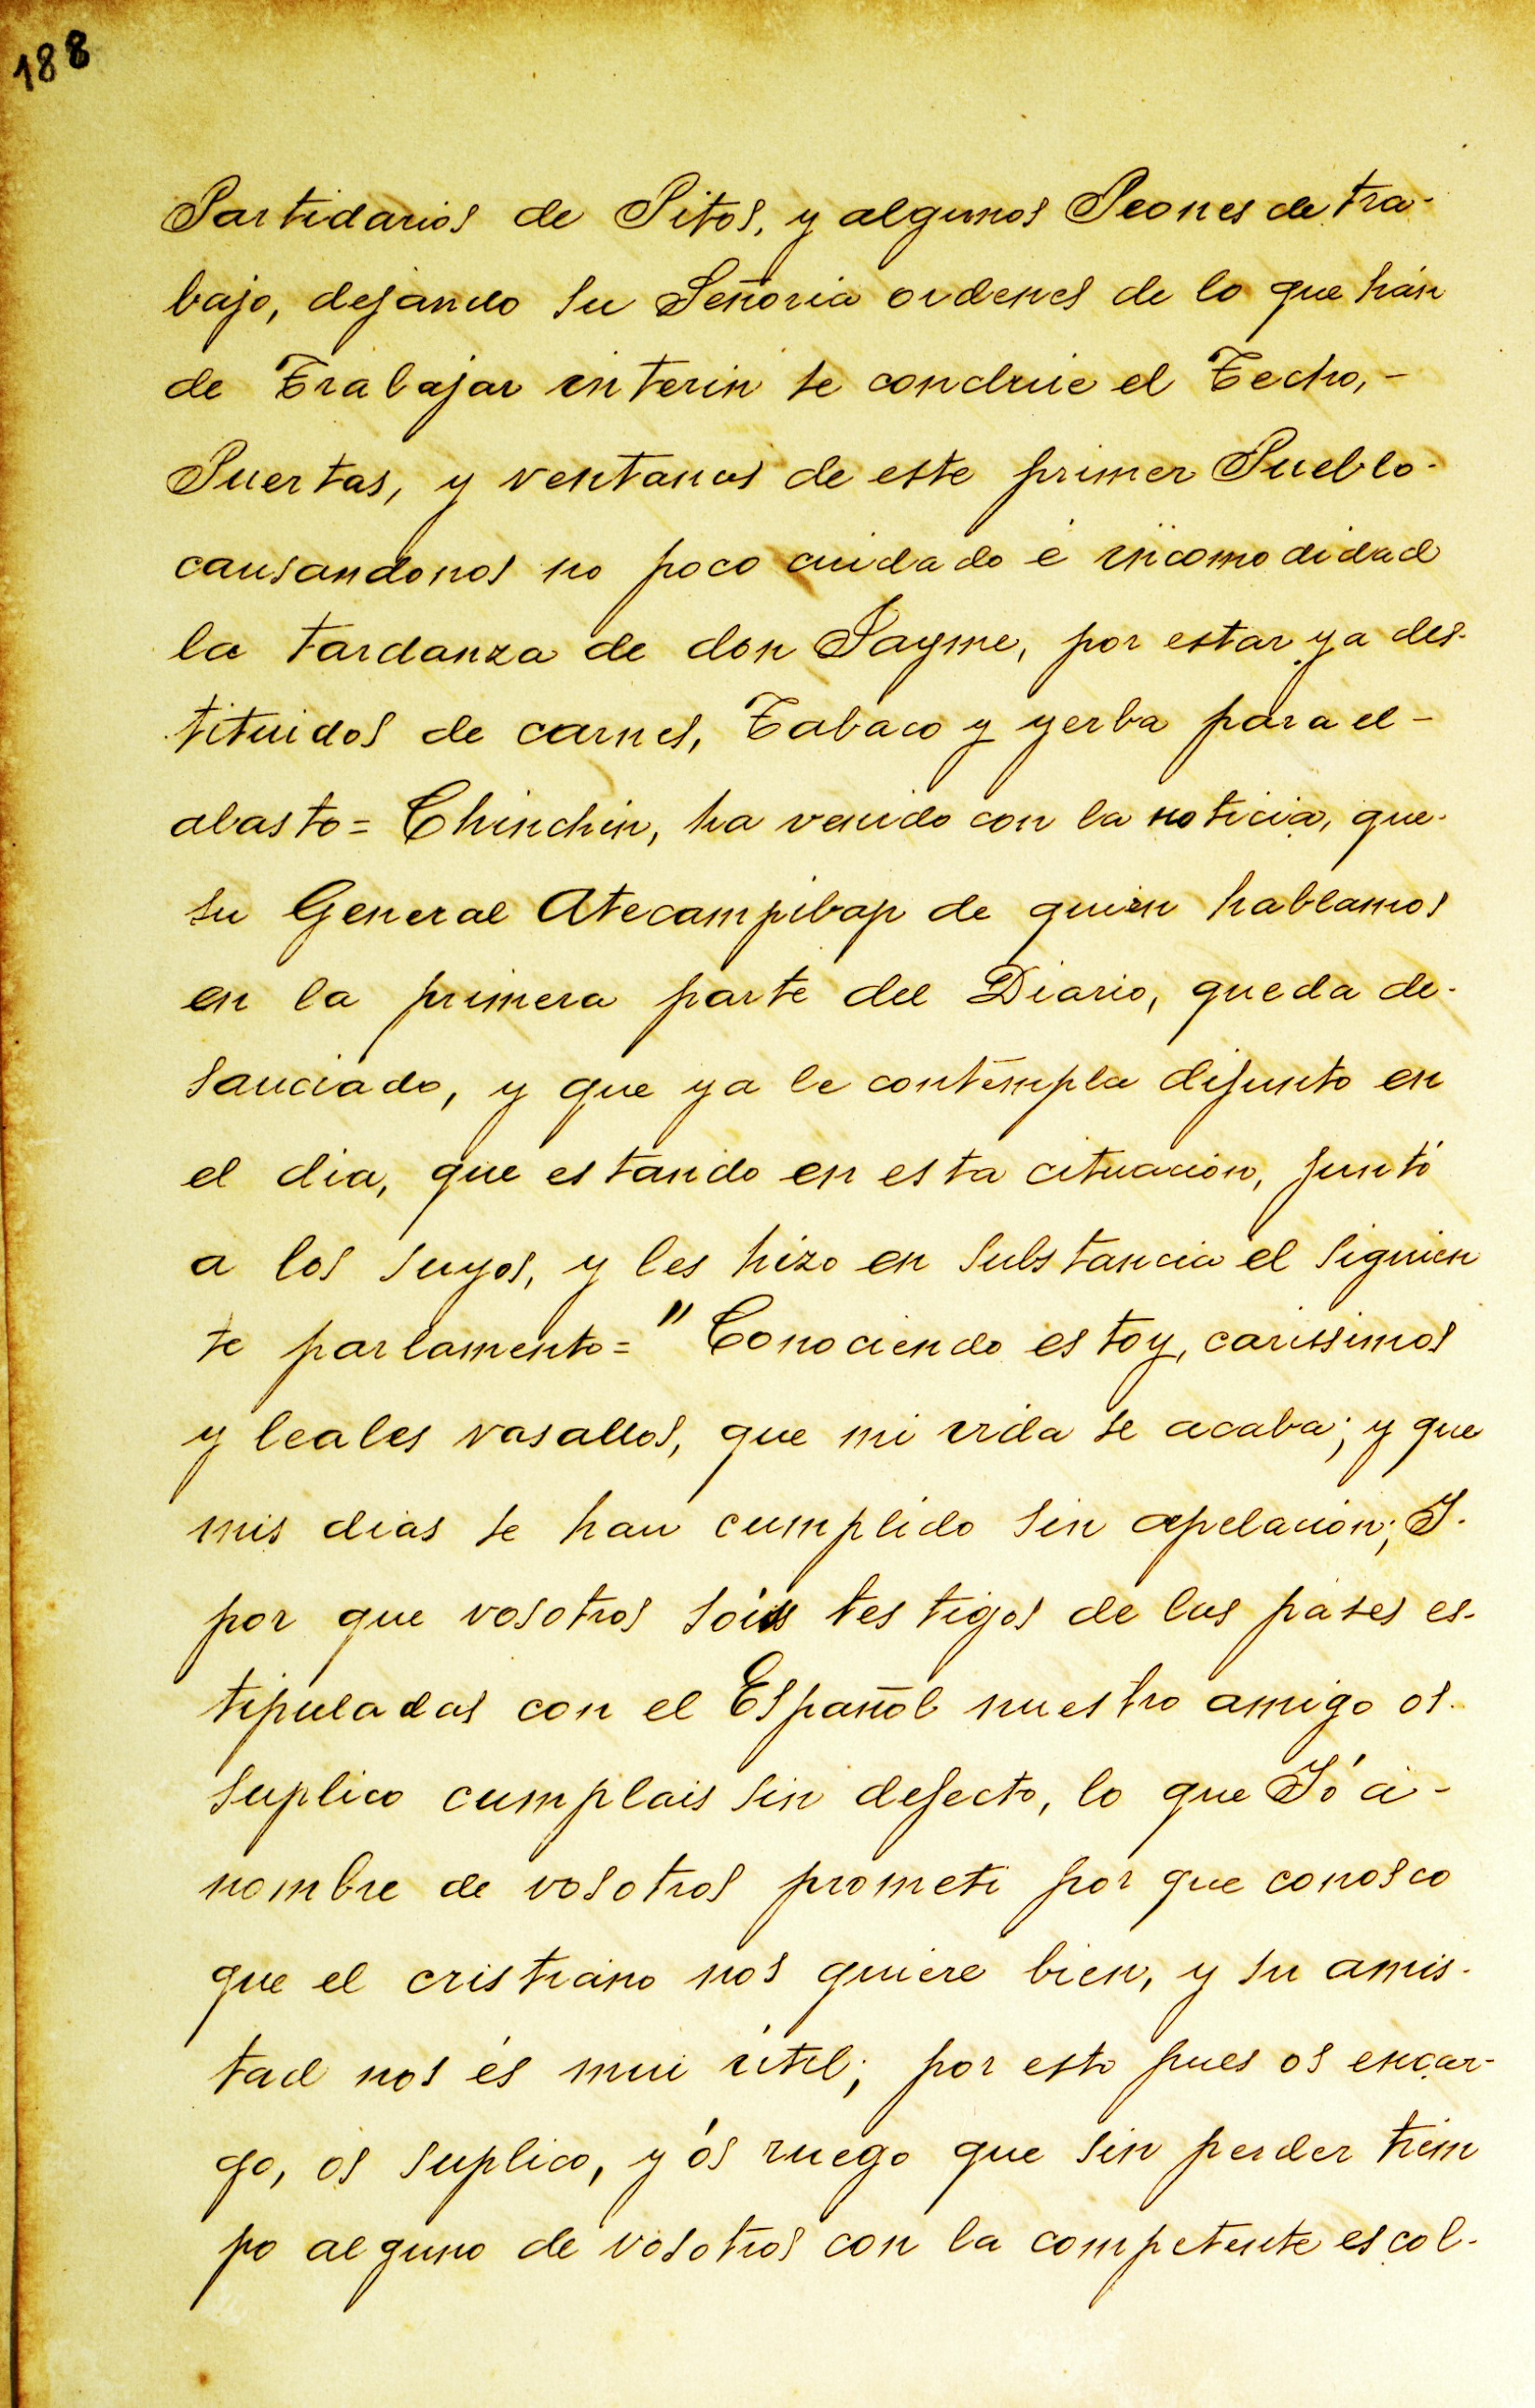 188
Partidarios de Pitos, y algunos Peones de tra-
bajo, dejando su Señoria ordenes de lo que hán
de Trabajar interin se condrue el Techo,-
Puertas, y ventanas de este primer Pueblo-
causandonos no poco cuidado é incomodidad
la tardanza de don Jayme, por estar ya des-
tituidos de carnes, Tabaco y yerba para el-
abasto= Chinchin, ha venido con la noticia, que-
su General Atecampibap de quien hablamos
en la primera parte del Diario, queda de-
sauciado, y que ya le contempla difunto en
el dia, que estando en esta cituacion, juntó
a los suyos, y les hizo en substancia el siguien
te parlamento= " Conociendo estoy, carissimos
y leales vasallos, que mi vida se acaba; y que
mis dias se han cumplido sin apelacion; Y.
por que vosotros sois testigos de las pases es-
tipuladas con el Español nuestro amigo os-
suplico cumplais sin defecto, lo que Yó á-
nombre de vosotros prometi por que conosco
que el cristiano nos quiere bien, y su amis-
tad nos és mui útil; por esto pues os encar-
go, os suplico, y ós ruego que sin perder tiem
po alguno de vosotros con la competente escol-